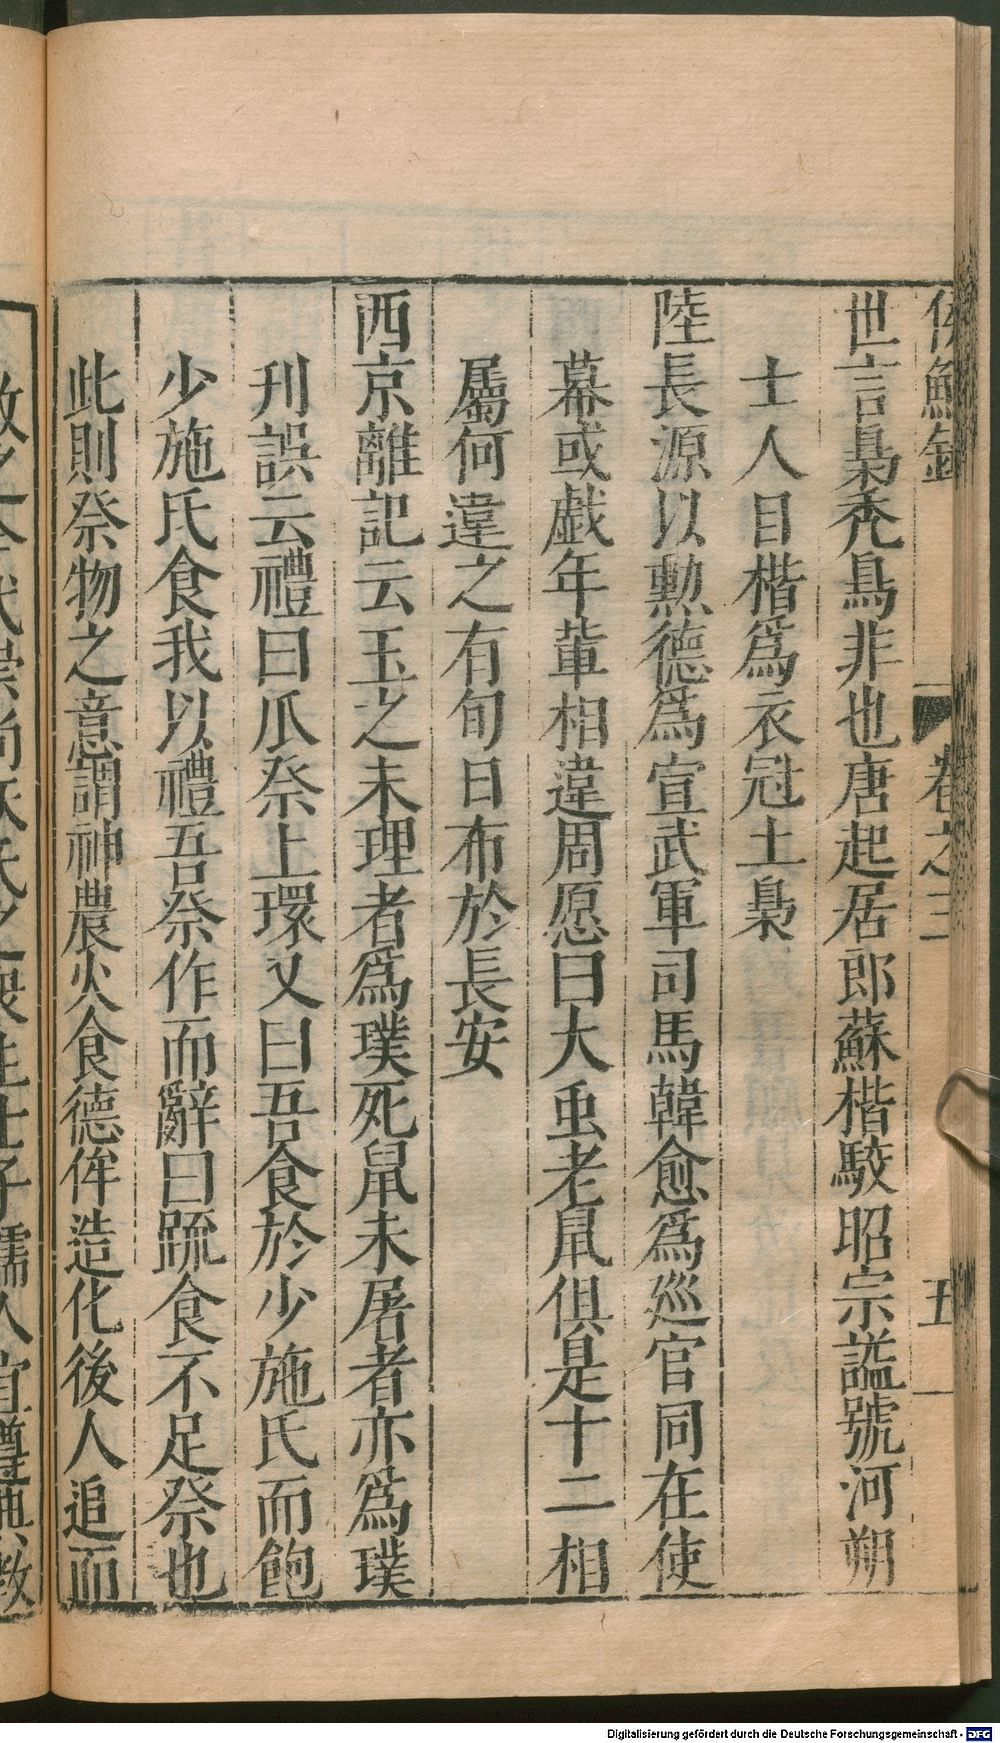 侯鯖錄 卷之三 五
世言梟禿鳥非也唐起居郎蘇楷駮昭宗謚號河朔
士人目楷爲衣冠土梟
陸長源以勲德爲宣武軍司馬韓愈爲巡官同在使
幕或戱年軰相違周愿曰大虫老鼠俱是十二相
屬何違之有旬日布於長安
西京雜記云玉之未理者爲璞死鼠未屠者亦爲璞
刋誤云禮曰瓜祭上環又曰吾食於少施氏而飽
少施氏食我以禮吾祭作而辭曰䟽食不足祭也
此則祭物之意謂神農火食德侔造化後人追而
Digitalisierung gefördert durch die Deutsche Forschungsgemeinschaft - DFG